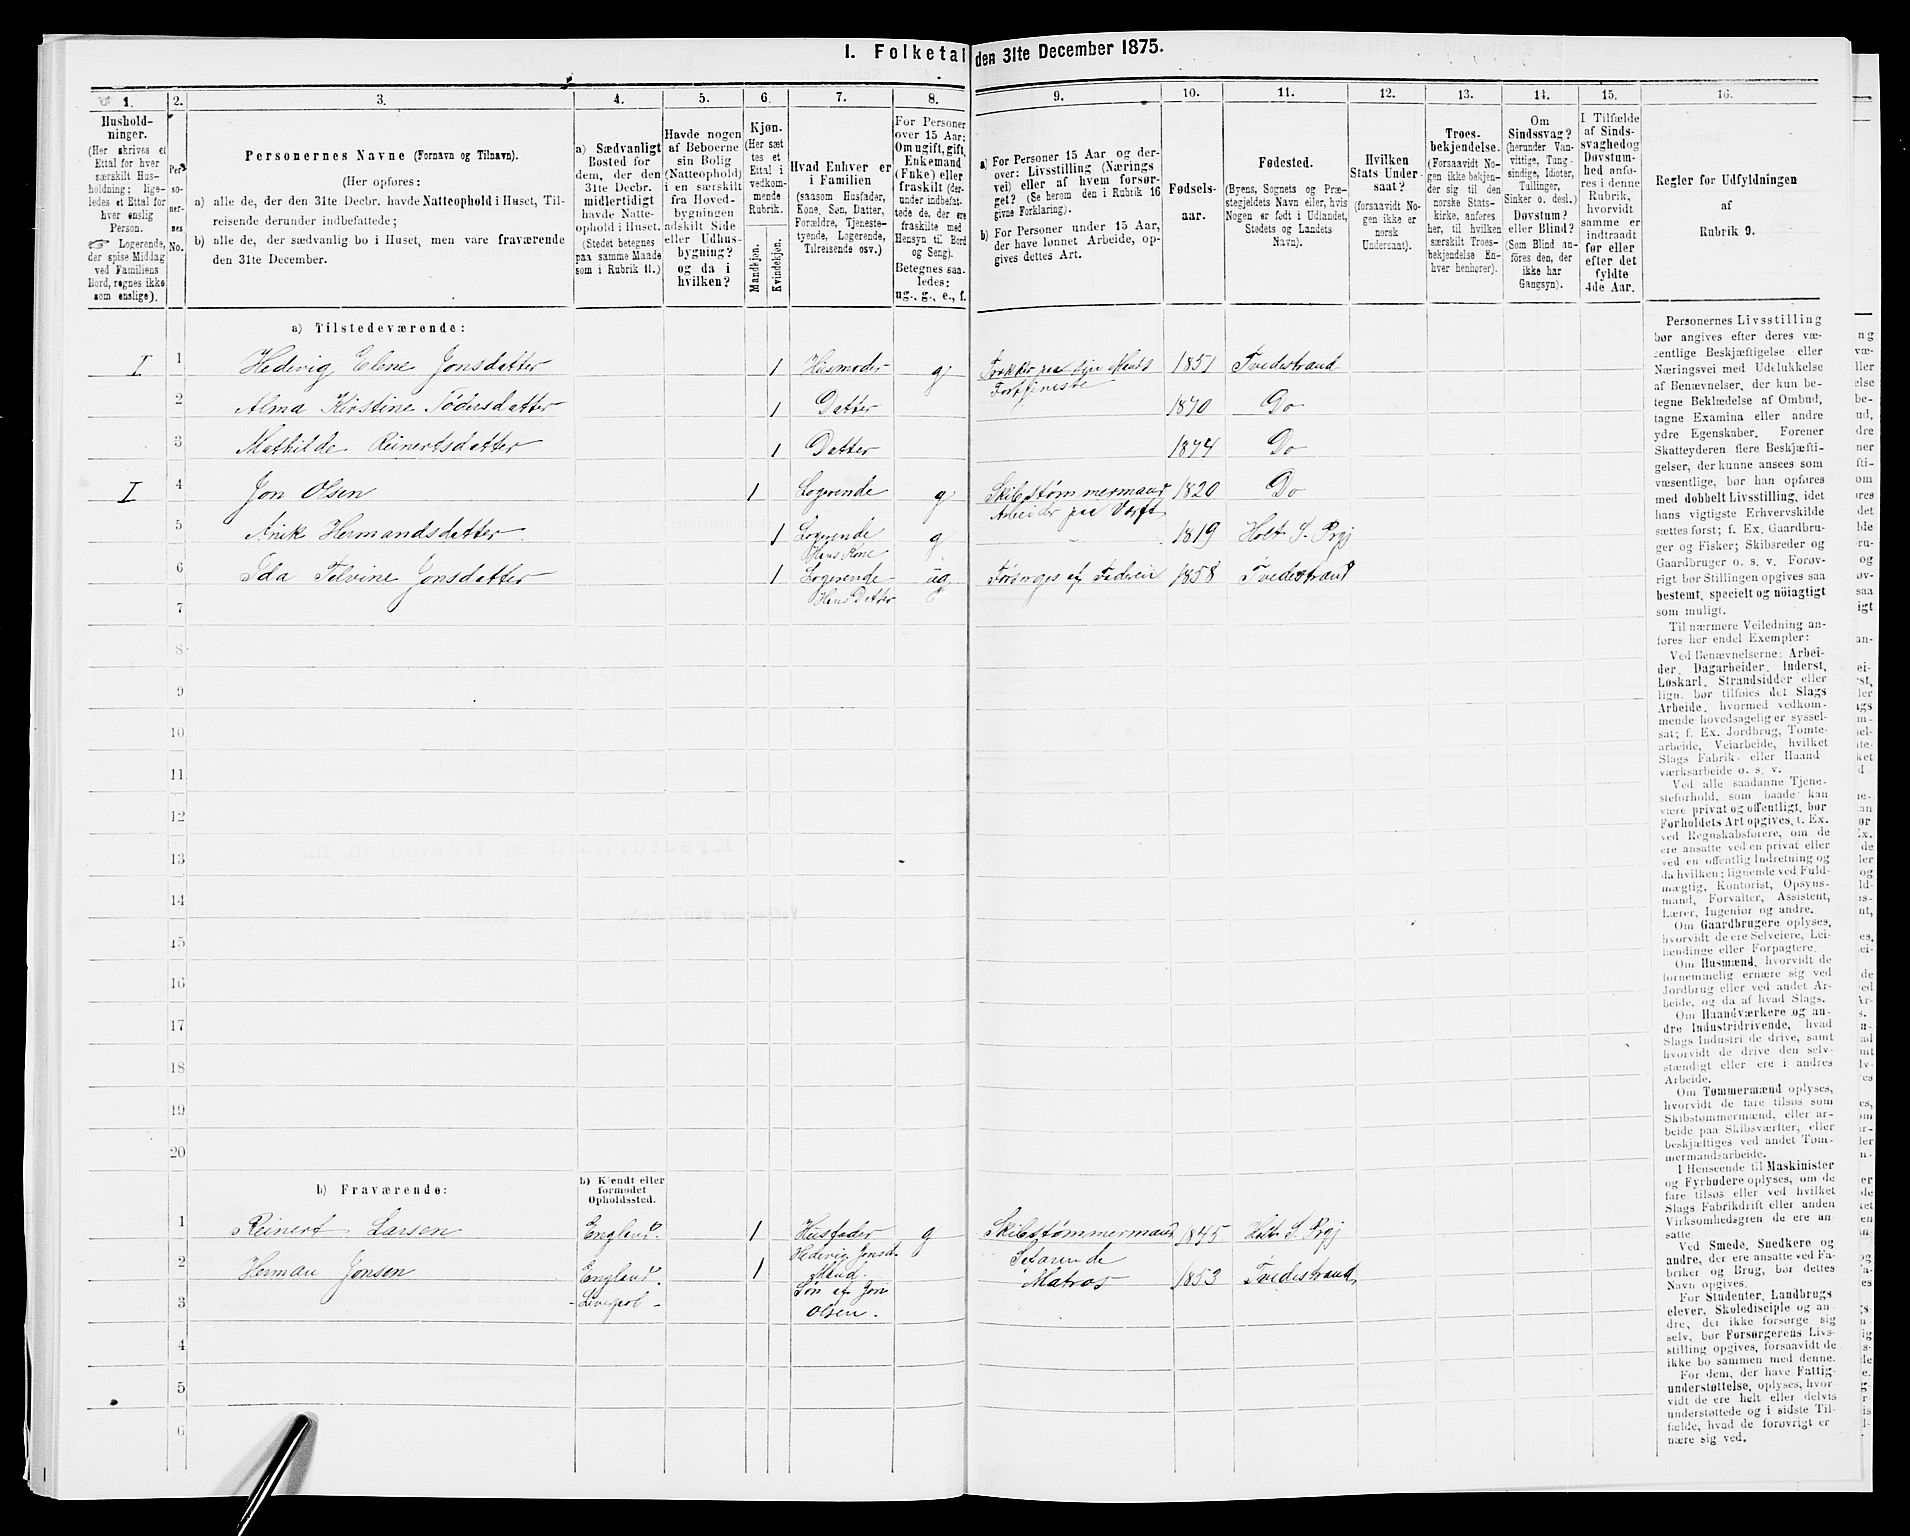 I. Folketal den 31te December 1875.
1. 2. 3. 4. 5. 6. 7. 8. 9. 10. 11. 12. 13. 14. 15. 16.
Hushold-
ninger.
(Her skrives et
Ettal for hver
særskilt Hus-
holdning; lige-
ledes et Ettal for
hver enslig
Person.
☞ Logerende,
der spise Middag
ved Familiens
Bord, regnes ikke
som enslige).
Per-
so-
ner-
nes
No.
Personernes Navne (Fornavn og Tilnavn).
(Her opføres:
a) alle de, der den 31te Decbr. havde Natteophold i Huset, Til-
reisende derunder indbefattede;
b) alle de, der sædvanlig bo i Huset, men vare fraværende
den 31te December.
a) Sædvanligt
Bosted for
dem, der den
31te Decbr.
midlertidigt
havde Natte-
ophold i Huset.
(Stedet betegnes
paa samme Maade
som i Rubrik 11.)
Havde nogen
af Beboerne
sin Bolig
(Natteophold)
i en særskilt
fra Hoved-
bygningen
adskilt Side
eller Udhus-
bygning?
og da i
hvilken?
Kjøn.
(Her sæt
tes et
Ettal i
vedkom-
mende
Rubrik.
Mandkjøn.
Kvindekjøn.
Hvad Enhver er
i Familien
(saasom Husfader,
Kone, Søn, Datter,
Forældre, Tjeneste-
tyende, Logerende,
Tilreisende osv.)
For Personer
over 15 Aar:
Om ugift, gift,
Enkemand
(Enke) eller
fraskilt (der-
under indbefat-
tede de, der ere
fraskilte med
Hensyn til Bord
og Seng).
Betegnes saa-
ledes:
ug., g., e., f.
a) For Personer 15 Aar og der-
over: Livsstilling (Nærings
vei) eller af hvem forsør-
get? (Se herom den i Rubrik 16
givne Forklaring).
b) For Personer under 15 Aar,
der have lønnet Arbeide, op-
gives dettes Art.
Fødsels-
aar.
Fødested.
(Byens, Sognets og Præ-
stegjeldets Navn eller, hvis
Nogen er født i Udlandet,
Stedets og Landets
Navn).
Hvilken
Stats Under-
saat?
(forsaavidt No-
gen ikke er
norsk
Undersaat).
Troes-
bekjendelse.
(Forsaavidt No-
gen ikke bekjen-
der sig til den
norske Stats-
kirke, anføres
her, til hvilken
særskilt Troes-
bekjendelse En-
hver henhører).
Om
Sindssvag?
(herunder Van-
vittige, Tung-
sindige, Idioter,
Tullinger,
Sinker o. desl.)
Døvstum?
eller Blind?
(Som Blind an-
føres den, der
ikke har
Gangsyn).
I Tilfælde
af Sinds-
svaghed og
Døvstum-
hed anfø-
res i denne
Rubrik,
hvorvidt
samme er
indtraadt
før eller
efter det
fyldte
4de Aar.
Regler for Udfyldningen
af
Rubrik 9.
a) Tilstedeværende:
I 1 Hedevig Elene Jonsdatter 1 Husmoder g paa sin Mands 1851 Tvedestrand
Fortjeneste
2 Alma Kirstine Tödersdatter 1 Datter 1870 Do
3 Mathilde Reinertsdatter 1 Datter 1874 Do
I 4 Jon Olsen 1 Logerende g Skibstømmermand 1820 Do
Arbeider paa Værft
5 Anik Hermandsdatter 1 Logerende g 1819 Holt S. Prgj
Hans Kone
6 Ida Tolvine Jonsdatter 1 Logerende ug Forsørges af Faderen 1858 Tvedestrand
Hans Datter
7
8
9
10
11
12
13
14
15
16
17
18
19
20
b) Fraværende:
b) Kjendt eller
formodet
Opholdssted.
1 Reinert Larsen England. 1 Husfader g Skibstømmermand 1845 Holt S. Prgj
Hedevig Jonsd.
Mand.
2 Herman Jonsen England. 1 Søn af Jon Matros 1853 Tvedestrand
3 - Livepol - Olsen.
4
5
6
Personernes Livsstilling
bør angives efter deres væ-
sentlige Beskjæftigelse eller
Næringsvei med Udelukkelse
af Benævnelser, der kun be-
tegne Beklædelse af Ombud,
tagne Examina eller andre
ydre Egenskaber. Forener
Skatteyderen flere Beskjæfti-
gelser, der kunne ansees som
væsentlige, bør han opføres
med dobbelt Livsstilling, idet
hans vigtigste Erhvervskilde
sættes først; f. Ex. Gaardbru-
ger og Fisker; Skibsreder og
Gaardbruger o. s. v. Forøv-
rigt bør Stillingen opgives saa
bestemt, specielt og nöiagtigt
som muligt.
Til nærmere Veiledning an-
føres her endel Exempler:
Ved Benævnelserne: Arbei-
der, Dagarbeider, Inderst,
Løskarl, Strandsidder eller
lign. bør tilføies det Slags
Arbeide, hvormed vedkom-
mende hovedsagelig er syssel-
sat; f. Ex. Jordbrug, Tomte-
arbeide, Veiarbeide, hvilket
Slags Fabrik- eller Haand
værksarbeide o. s. v.
Ved alle saadanne Tjene-
steforhold, som baade kan
være privat og offentligt, bør
Forholdets Art opgives, t. Ex.
ved Regnskabsførere, om de
ere ansatte ved en privat eller
ved en offentlig Indretning og
da hvilken; lignende ved Fuld-
mægtig, Kontorist, Opsyns-
mand, Forvalter, Assistent,
Lærer, Ingeniør og andre.
Om Gaardbrugere oplyses,
hvorvidt de ere Selveiere, Lei-
lændinge eller Forpagtere.
Om Husmænd, hvorvidt de
fornemmelig ernære sig ved
Jordbrug eller ved andet Ar-
beide, og da af hvad Slags.
Om Haandværkere og an-
dre Industridrivende, hvad
Slags Industri de drive, samt
hvorvidt de drive den selv-
stændigt eller ere i andres
Arbeide.
Om Tømmermænd oplyses,
hvorvidt de fare tilsøs som
Skibstømmermænd, eller ar-
beide paa Skibsværfter, eller
beskjæftiges ved andet Tøm-
mermandsarbeide.
I Henseende til Maskinister
og Fyrbødere oplyses, om de
fare tilsøs eller ved hvilket
Slags Fabrikdrift eller anden
Virksomhedsgren de ere an-
satte
Ved Smede, Snedkere og
andre, der ere ansatte ved Fa-
briker og Brug, bør dettes
Navn opgives.
For Studenter, Landbrugs
elever, Skoledisciple og an-
dre, der ikke forsørge sig
selv, bør Forsørgerens Livs-
stilling opgives, forsaavidt de
ikke bo sammen med denne.
For dem, der have Fattig-
understøttelse, oplyses, hvor-
vidt de ere helt eller delvis
understøttede og i sidste Til-
fælde, hvad de forøvrigt er
nære sig ved.